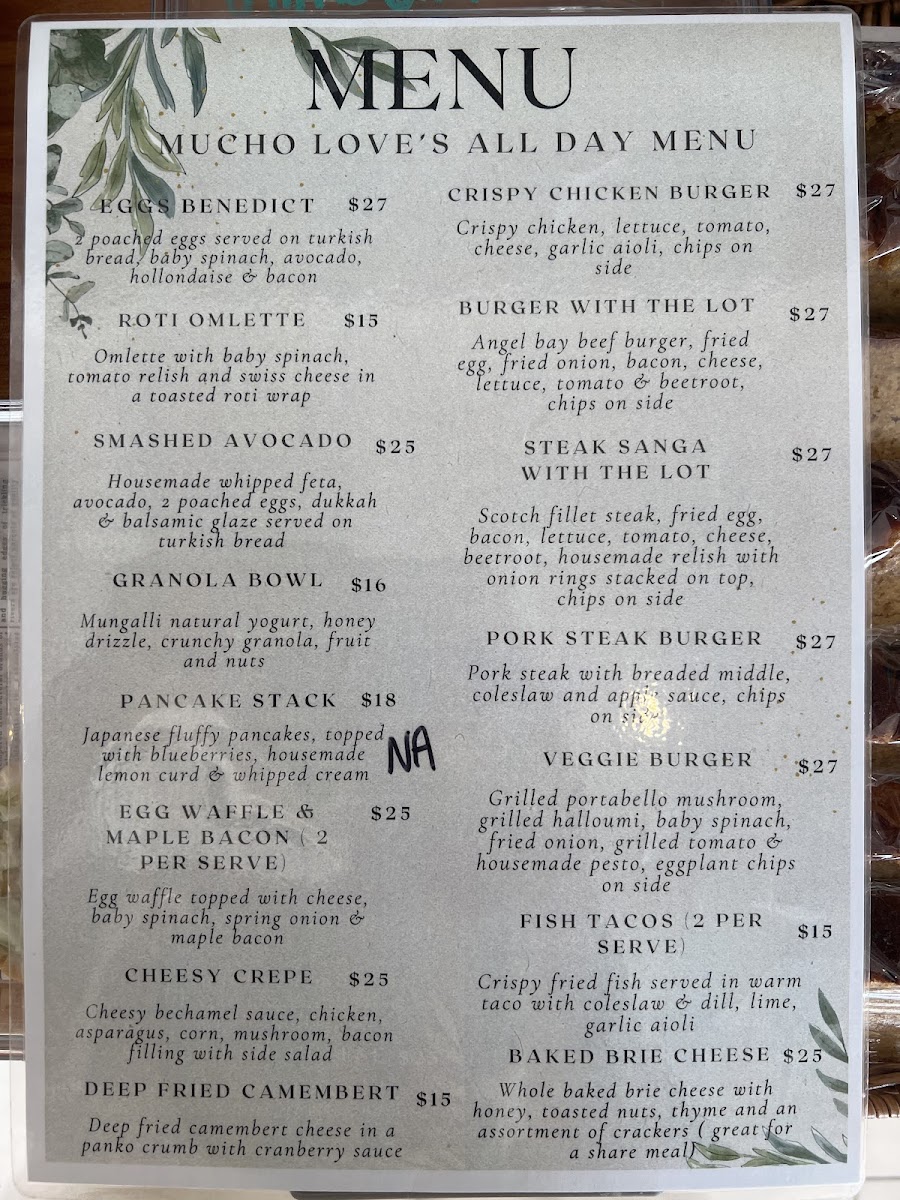 MENU
MUCHO LOVE'S ALL DAY MENU
EGGS BENEDICT $27
2 poached eggs served on turkish
bread, baby spinach, avocado,
hollondaise & bacon
ROTI OMLETTE $15
Omlette with baby spinach,
tomato relish and swiss cheese in
a toasted roti wrap
SMASHED AVOCADO $25
Housemade whipped feta,
avocado, 2 poached eggs, dukkah
& balsamic glaze served on
turkish bread
GRANOLA BOWL $16
Mungalli natural yogurt, honey
drizzle, crunchy granola, fruit
and nuts
PANCAKE STACK $18
Japanese fluffy pancakes, topped
with blueberries, housemade
lemon curd & whipped cream
NA
EGG WAFFLE & $25
MAPLE BACON ( 2
PER SERVE)
Egg waffle topped with cheese,
baby spinach, spring onion &
maple bacon
CHEESY CREPE $25
Cheesy bechamel sauce, chicken,
asparagus, corn, mushroom, bacon
filling with side salad
DEEP FRIED CAMEMBERT $15
Deep fried camembert cheese in a
panko crumb with cranberry sauce
CRISPY CHICKEN BURGER $27
Crispy chicken, lettuce, tomato,
cheese, garlic aioli, chips on
side
BURGER WITH THE LOT $27
Angel bay beef burger, fried
egg, fried onion, bacon, cheese,
lettuce, tomato & beetroot,
chips on side
STEAK SANGA $27
WITH THE LOT
Scotch fillet steak, fried egg,
bacon, lettuce, tomato, cheese,
beetroot, housemade relish with
onion rings stacked on top,
chips on side
PORK STEAK BURGER $27
Pork steak with breaded middle,
coleslaw and apple sauce, chips
on side
VEGGIE BURGER $27
Grilled portabello mushroom,
grilled halloumi, baby spinach,
fried onion, grilled tomato &
housemade pesto, eggplant chips
on side
FISH TACOS (2 PER $15
SERVE)
Crispy fried fish served in warm
taco with coleslaw & dill, lime,
garlic aioli
BAKED BRIE CHEESE $25
Whole baked brie cheese with
honey, toasted nuts, thyme and an
assortment of crackers ( great for
a share meal)